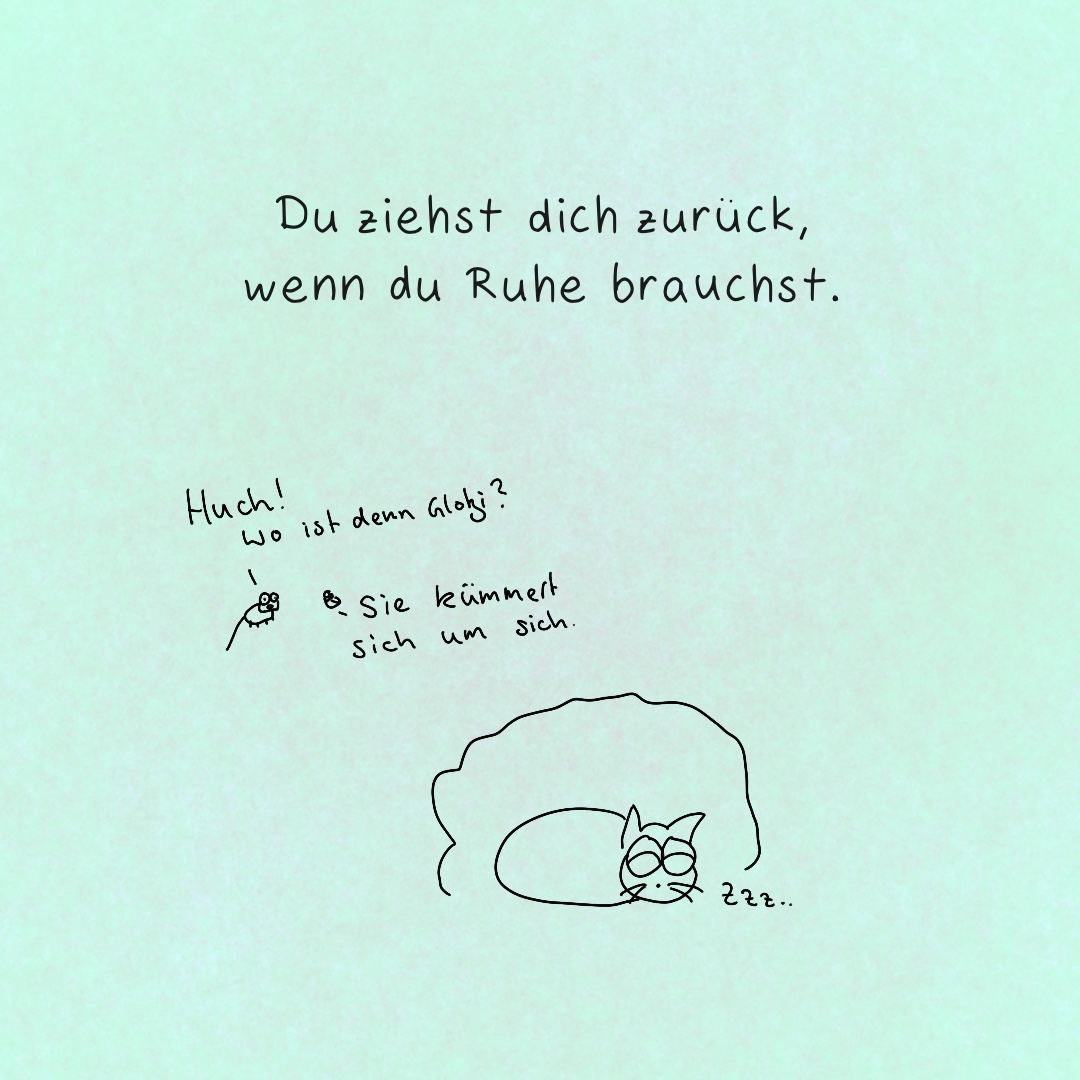 Du ziehst dich zurück,
wenn du Ruhe brauchst.
Huch!
Wo ist denn Glotzi?
Sie kümmert
sich um sich.
Zzz..